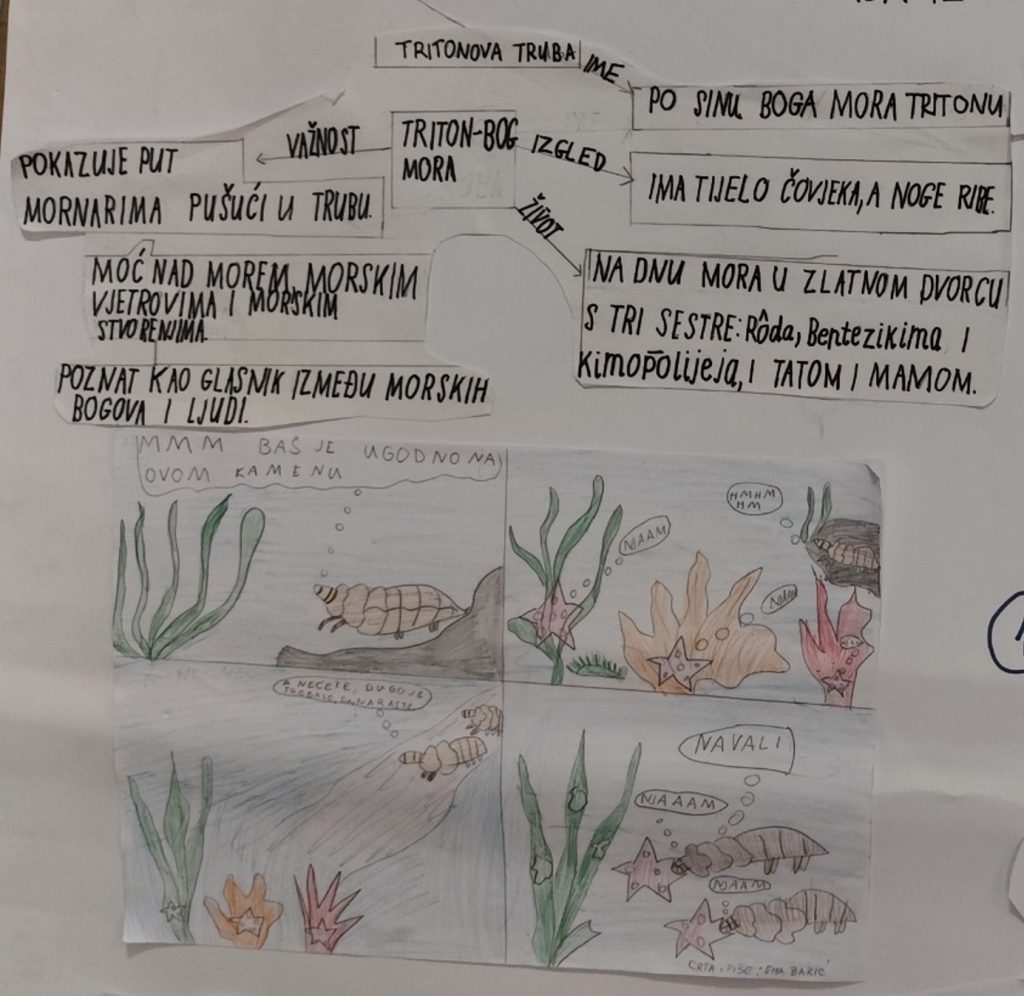 TRITONOVA TRUBA
IME
PO SINU BOGA MORA TRITONU
TRITON-BOG
MORA
VAŽNOST
POKAZUJE PUT
MORNARIMA PUŠUĆI U TRUBU.
IZGLED
IMA TIJELO ČOVJEKA, A NOGE RIBE.
ŽIVOT
NA DNU MORA U ZLATNOM DVORCU
S TRI SESTRE: Rôda, Bentezikima I
Kimopōlijeja, I TATOM I MAMOM.
MOĆ NAD MOREM, MORSKIM
VJETROVIMA I MORSKIM
STVORENJIMA.
POZNAT KAO GLASNIK IZMEĐU MORSKIH
BOGOVA I LJUDI.
MMM BAŠ JE UGODNO NA
OVOM KAMENU
HMHM
HM
NJAAM
NJAM
A NEĆETE, DUGO JE
TREBALO DA NARASTE
NAVALI
NJAAAM
NJAAM
CRTA I PIŠE: EMA BARIĆ